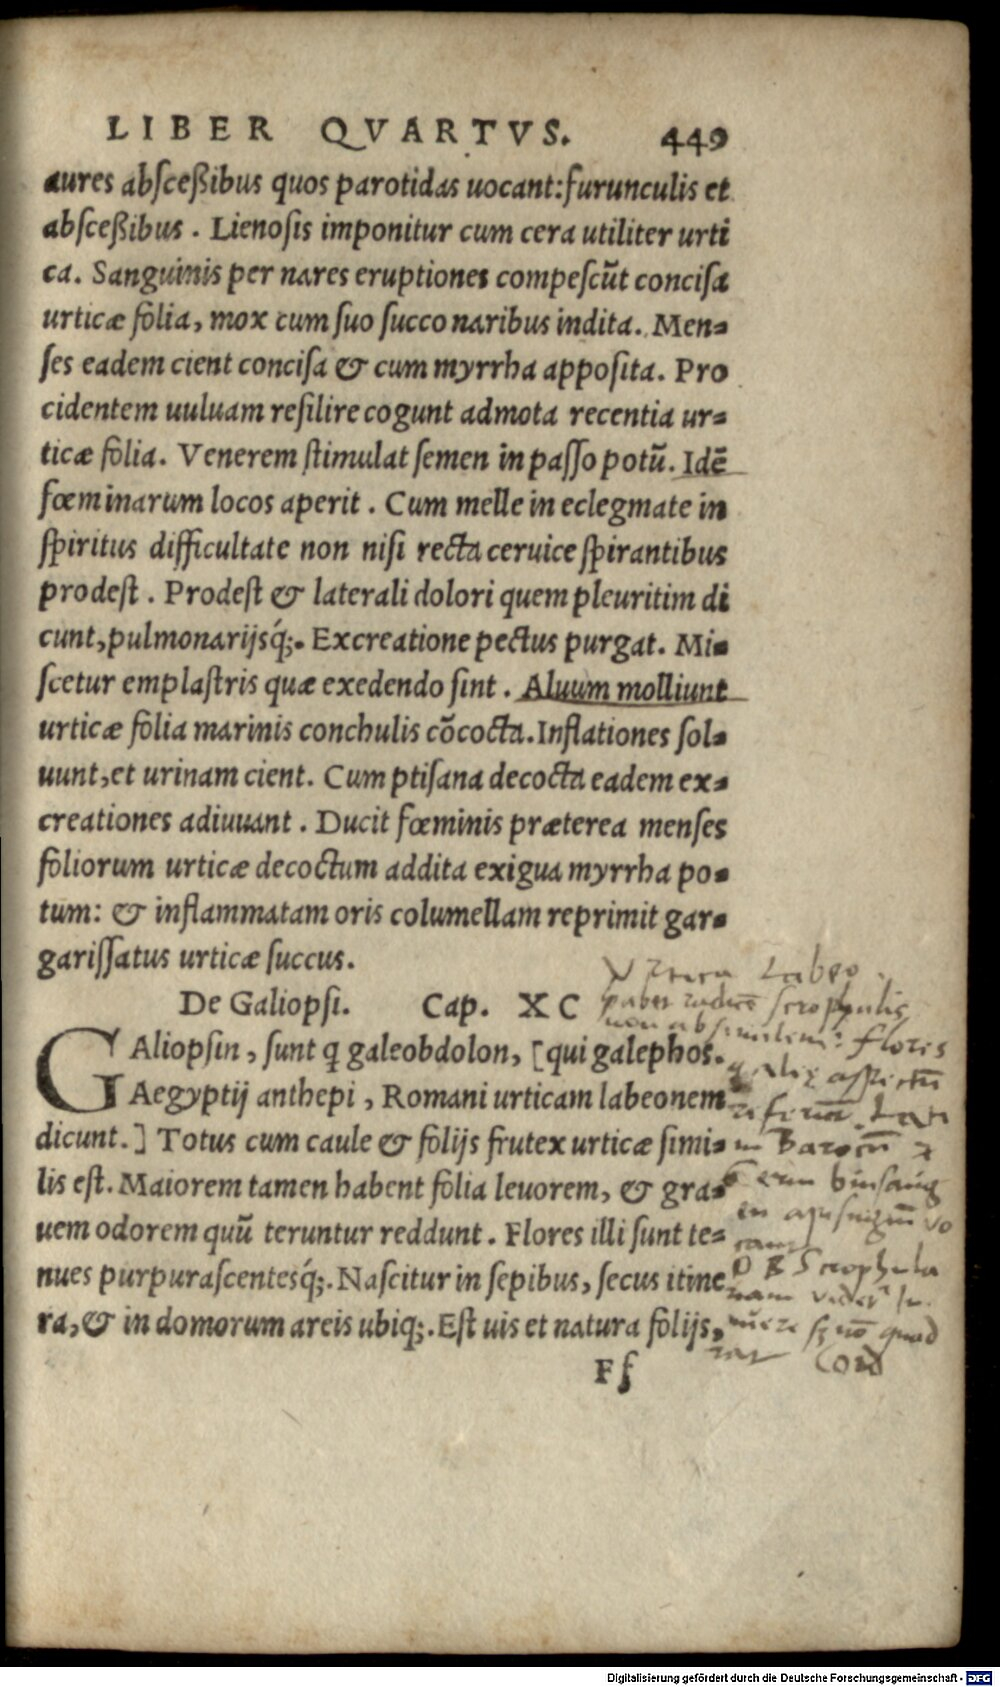 LIBER QVARTVS. 449
aures absceßibus quos parotidas uocant: furunculis et
absceßibus. Lienosis imponitur cum cera utiliter urti
ca. Sanguinis per nares eruptiones compescūt concisa
urticæ folia, mox cum suo succo naribus indita. Men=
ses eadem cient concisa & cum myrrha apposita. Pro
cidentem uuluam resilire cogunt admota recentia ur=
ticæ folia. Venerem stimulat semen in passo potū. Idē
fœminarum locos aperit. Cum melle in eclegmate in
spiritus difficultate non nisi recta ceruice spirantibus
prodest. Prodest & laterali dolori quem pleuritim di
cunt, pulmonarijsq́;. Excreatione pectus purgat. Mi=
scetur emplastris quæ exedendo sint. Aluum molliunt
urticæ folia marinis conchulis cōcocta. Inflationes sol=
uunt, et urinam cient. Cum ptisana decocta eadem ex=
creationes adiuuant. Ducit fœminis præterea menses
foliorum urticæ decoctum addita exigua myrrha po=
tum: & inflammatam oris columellam reprimit gar=
garissatus urticæ succus.
De Galiopsi. Cap. XC
GAliopsin, sunt q galeobdolon, [qui galephos.
Aegyptij anthepi, Romani urticam labeonem
dicunt.] Totus cum caule & folijs frutex urticæ simi=
lis est. Maiorem tamen habent folia leuorem, & gra=
uem odorem quū teruntur reddunt. Flores illi sunt te=
nues purpurascentesq́;. Nascitur in sepibus, secus itine
ra, & in domorum areis ubiq;. Est uis et natura folijs,
Ff
Vrtica Labeo
habet radicē scrophulis
non absimilem: flores
aspectū
Scrophula
quod
Cord
Digitalisierung gefördert durch die Deutsche Forschungsgemeinschaft - DFG